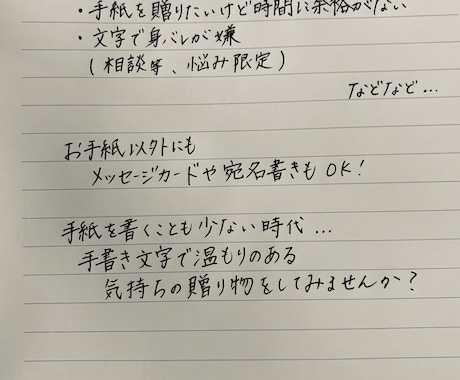 ・手紙を贈りたいけど時間に余裕がない
・文字で身バレが嫌
(相談等、悩み限定)
などなど...
お手紙以外にも
メッセージカードや宛名書きもOK!
手紙を書くことも少ない時代...
手書き文字で温もりのある
気持ちの贈り物をしてみませんか?